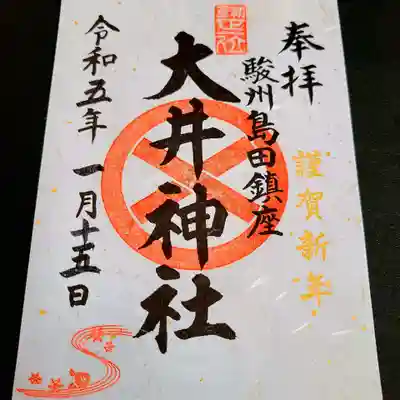 奉拝
謹賀新年
駿州島田鎮座
大井神社
令和五年一月十五日